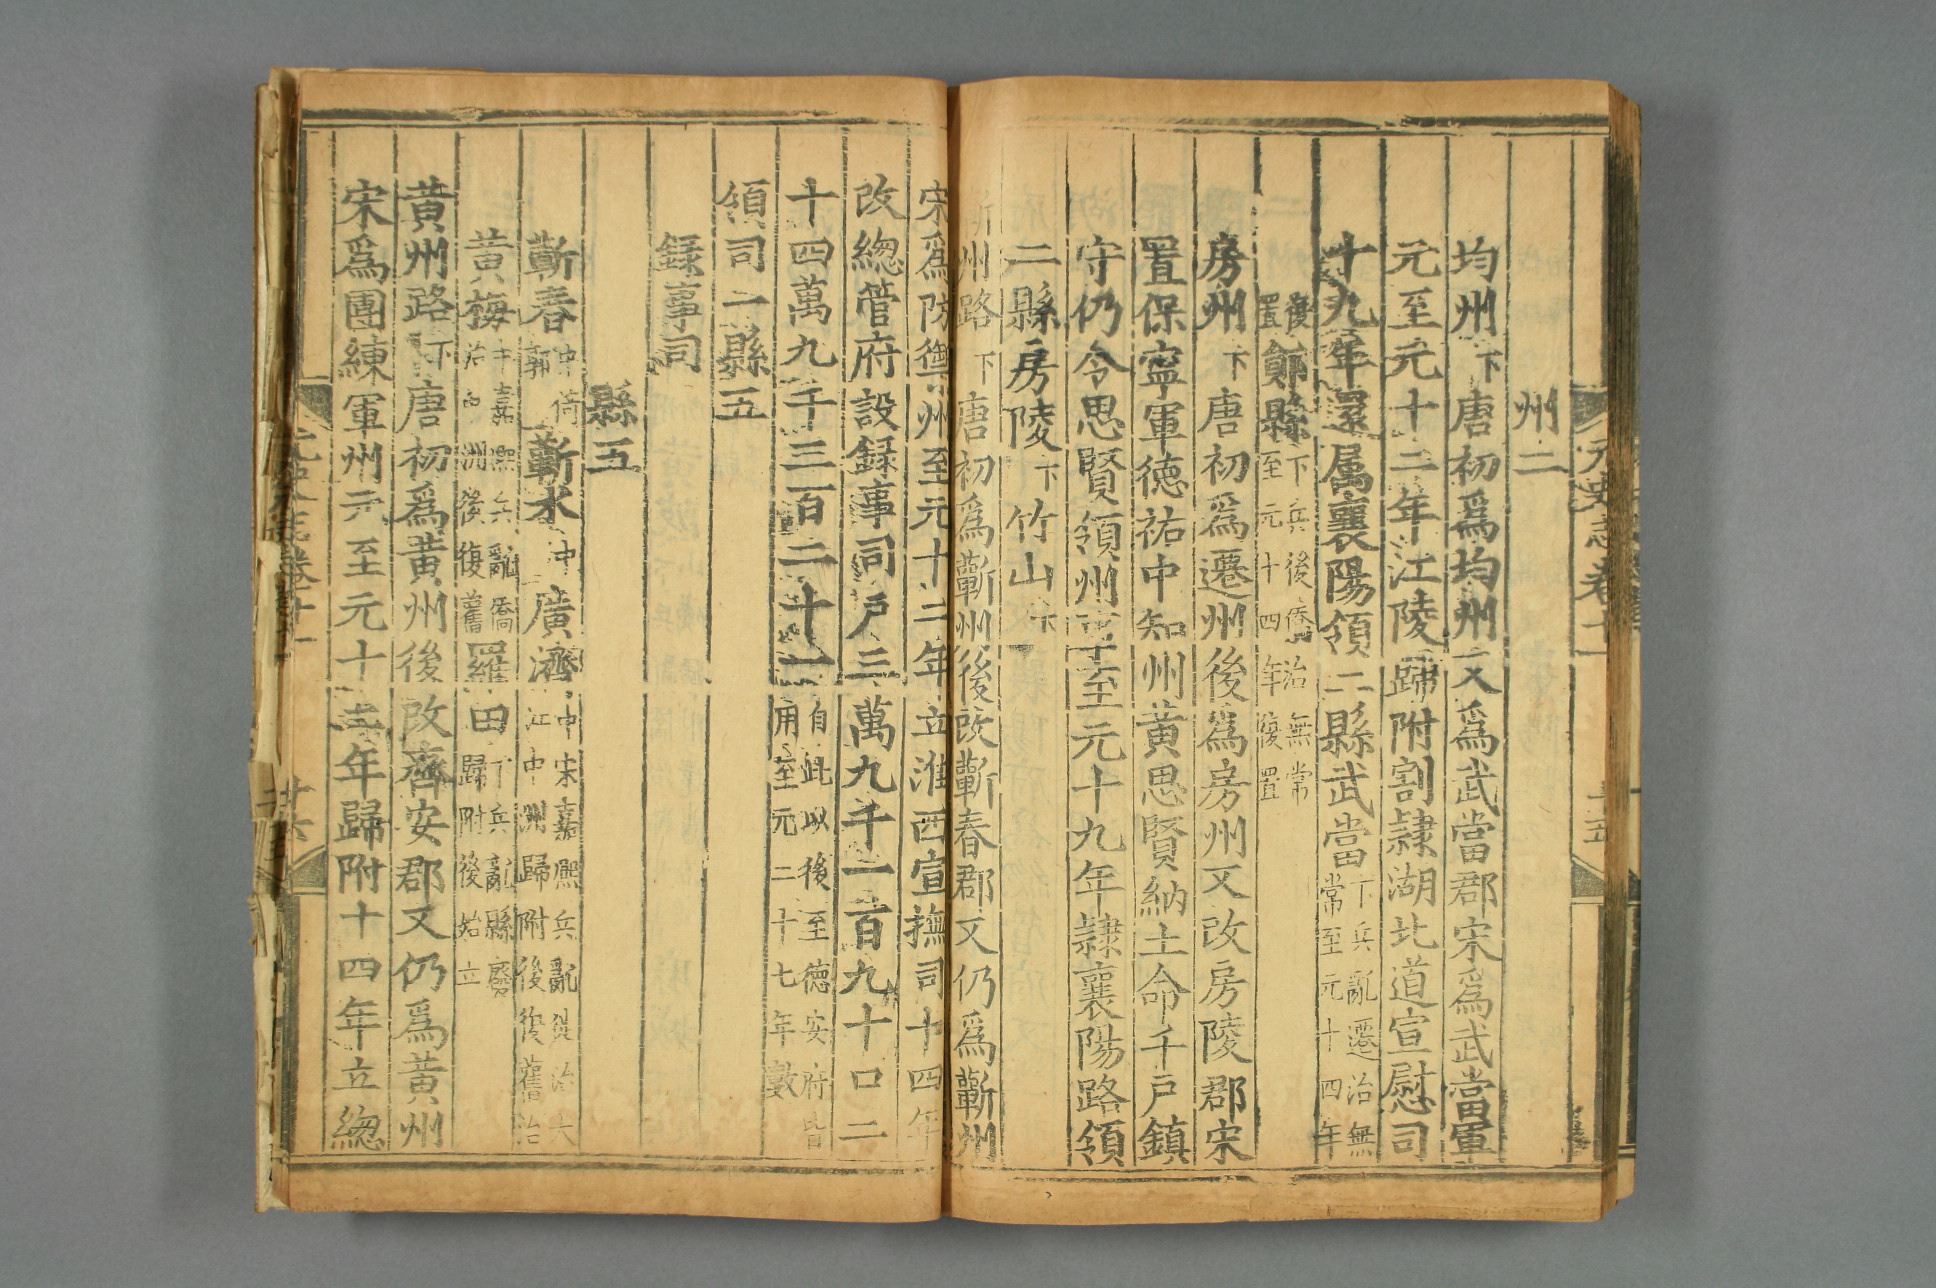 元史志卷十一
二十五
州二
均州下唐初爲均州又爲武當郡宋爲武當軍
元至元十二年江陵歸附割隷湖北道宣慰司
十九年還屬襄陽領二縣武當下兵亂遷治無
常至元十四年
復
置鄖縣下兵後僑治無常
至元十四年復置
房州下唐初爲遷州後爲房州又改房陵郡宋
置保寧軍德祐中知州黄思賢納土命千戸鎮
守仍令思賢領州事至元十九年隷襄陽路領
二縣房陵下竹山下
蘄州路下唐初爲蘄州後改蘄春郡又仍爲蘄州
宋爲防禦州至元十二年立淮西宣撫司十四年
改緫管府設録事司戸三萬九千一百九十口二
十四萬九千三百二十一自此以後至德安府皆
用至元二十七年數
領司一縣五
録事司
縣五
蘄春中倚
郭蘄水中廣濟中宋嘉熙兵亂徙治大
江中洲歸附後復舊治
黄梅中嘉熙兵亂僑
治中洲後復舊羅田下兵亂縣廢
歸附後始立
黄州路下唐初爲黄州後改齊安郡又仍爲黄州
宋爲團練軍州元至元十二年歸附十四年立緫
元史志卷十一
廿六